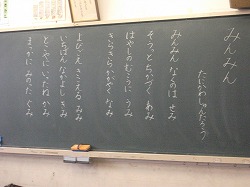 みんみん
たにかわしゅんたろう
みんみん なくのは せみ
そうっと ちかづく わみ
はやしの むこうに うみ
きらきら かがやく なみ
よびごえ きこえる みみ
いちばん なかよし きみ
とこやに いったね かみ
まっかに みのった ぐみ